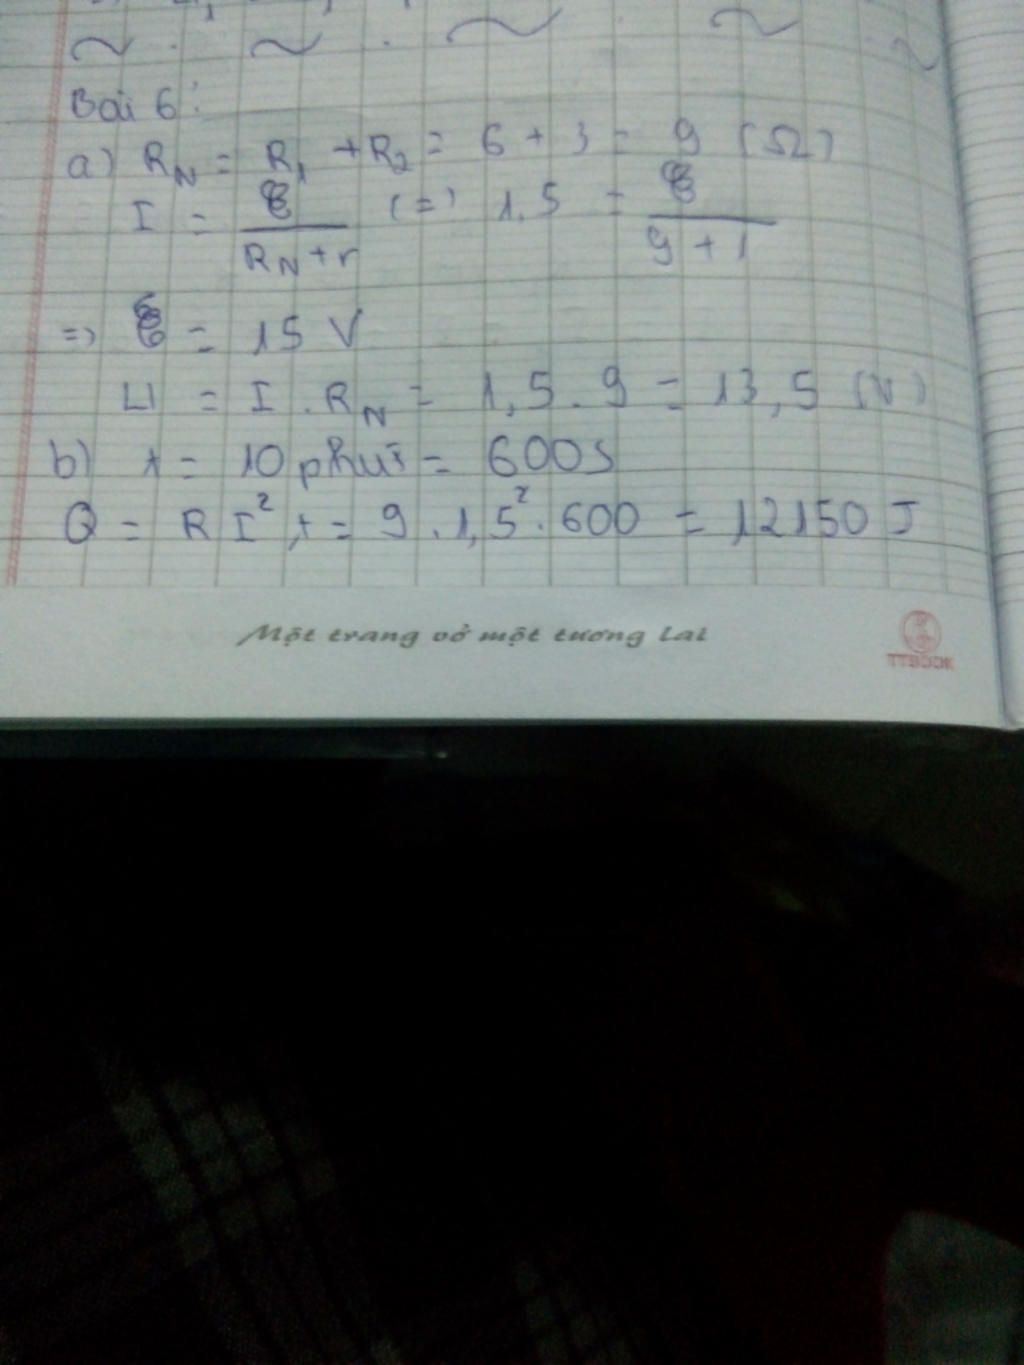 Bài 6:
a) R_N = R_1 + R_2 = 6 + 3 = 9 (Ω)
I = ℰ / (R_N + r) (=) 1,5 = ℰ / (9 + 1)
=> ℰ = 15 V
U = I . R_N = 1,5 . 9 = 13,5 (V)
b) t = 10 phút = 600s
Q = R I² t = 9 . 1,5² . 600 = 12150 J
Một trang vở một tương lai
TTBOOK